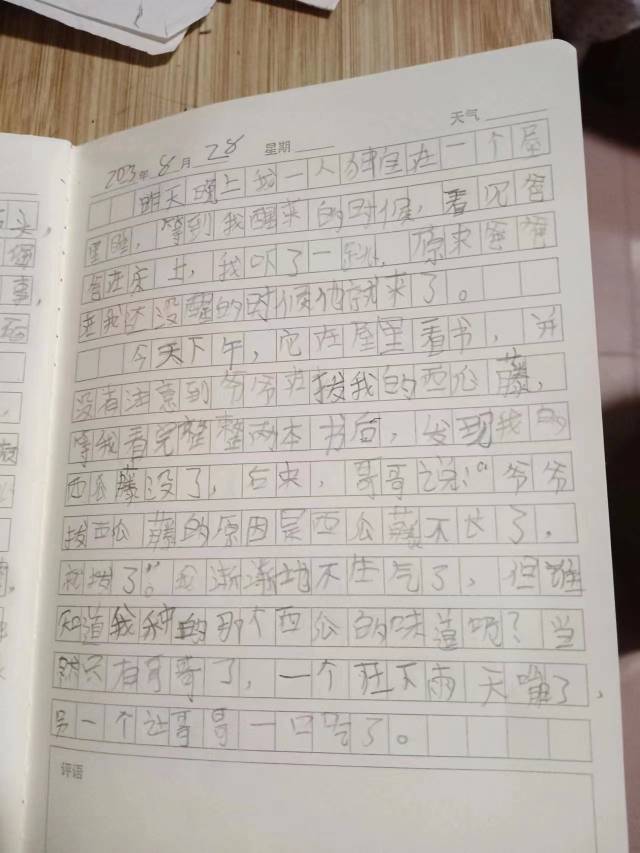 天气
203年 8月 28 星期
昨天晚上我一人独自在一个屋
里睡,等到我醒来的时候,看见爸
爸在床上,我吓了一跳,原来爸爸
在我还没醒的时候他就来了。
今天下午,它在屋里看书,并
没有注意到爷爷在拔我的西瓜藤,
等我看完整整两本书后,发现我的
西瓜藤没了,后来,哥哥说:“爷爷
拔西瓜藤的原因是西瓜藤不长了,
就拔了”。我渐渐地不生气了,但谁
知道我种的那个西瓜的味道呢?当
然只有哥哥了,一个在下雨天啃了,
另一个让哥哥一口吃了。
评语